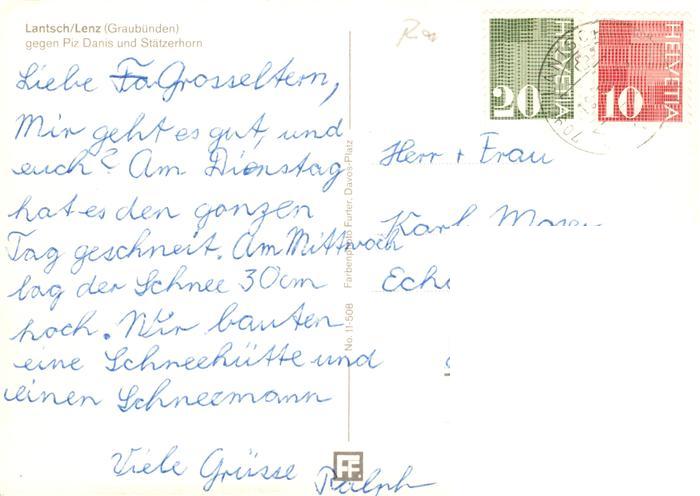 Lantsch/Lenz (Graubünden)
gegen Piz Danis und Stätzerhorn
Liebe Grosseltern,
Mir geht es gut, und
euch? Am Dienstag
hat es den ganzen
Tag geschneit. Am Mittwoch
lag der Schnee 30cm
hoch. Wir bauten
eine Schneehütte und
einen Schneemann
Viele Grüsse Ralph
No. 11-508 Farbenphoto Furter, Davos-Platz
FF
HELVETIA
20
HELVETIA
10
Herr + Frau
Karl